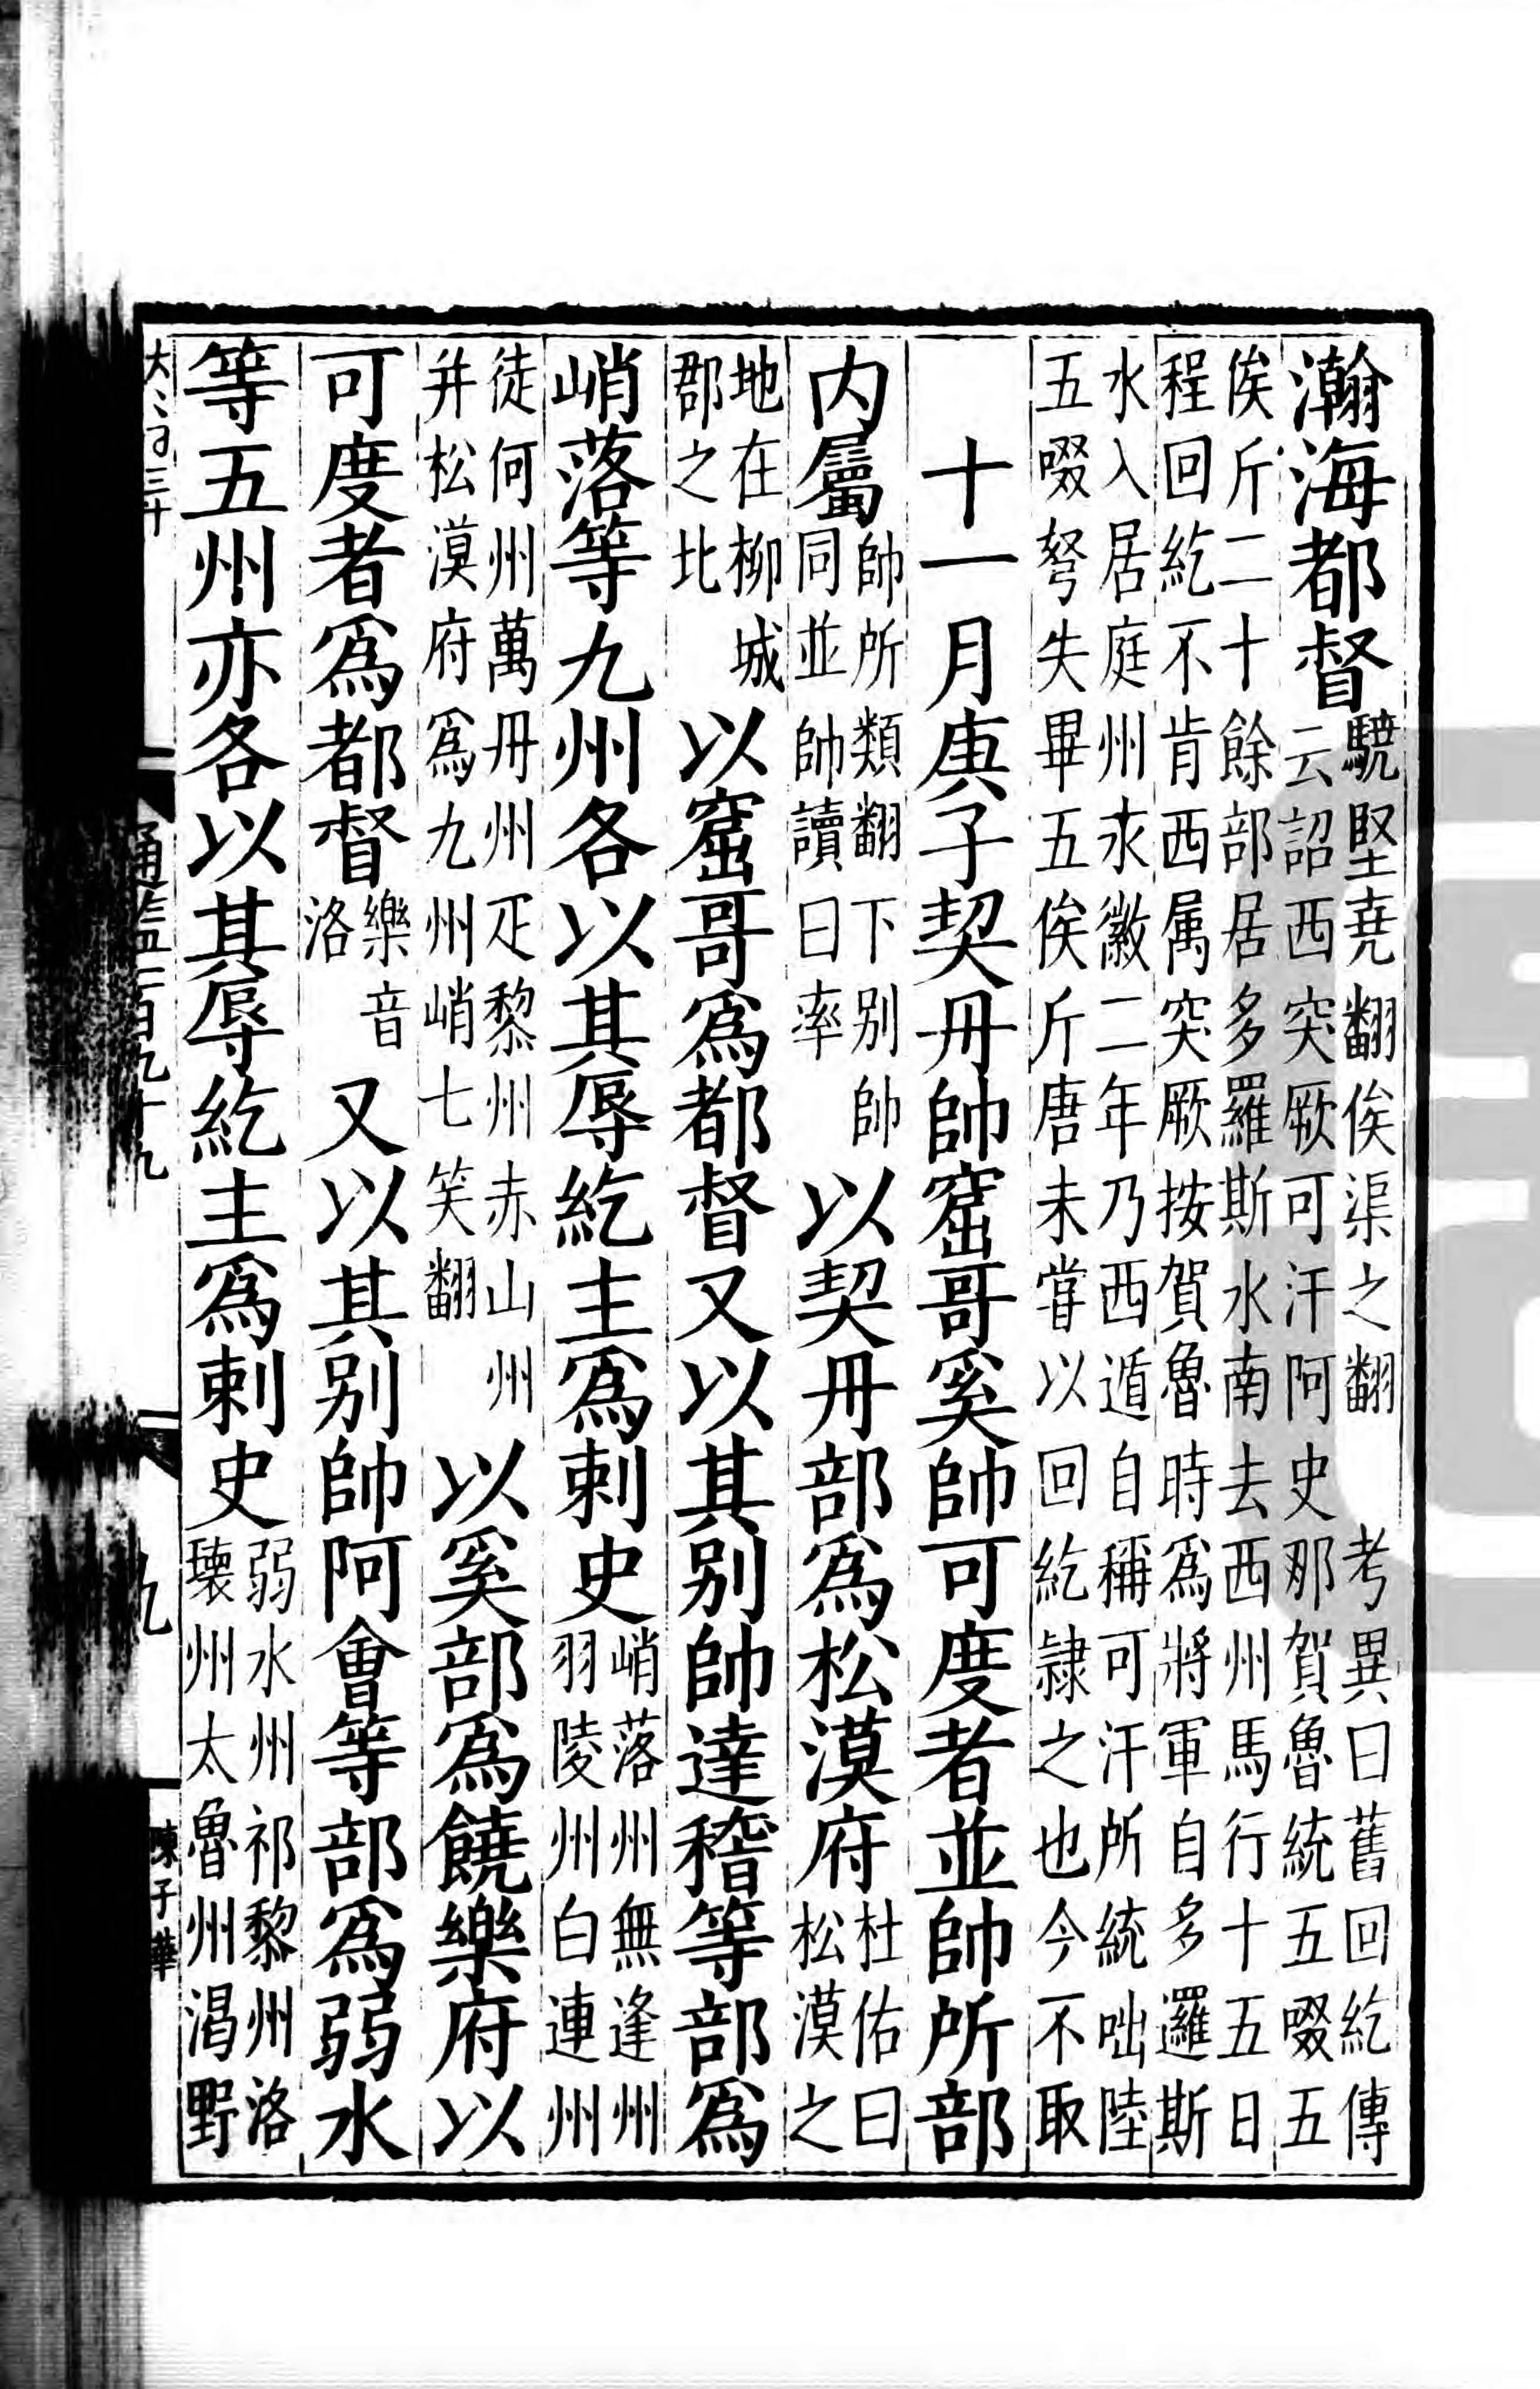 瀚海都督驍堅堯翻俟渠之翻 考異曰舊回紇傳
云詔西突厥可汗阿史那賀魯統五啜五
俟斤二十餘部居多羅斯水南去西州馬行十五日
程回紇不肯西属突厥按賀魯時爲將軍自多邏斯
水入居庭州永徽二年乃西遁自稱可汗所統咄陸
五啜弩失畢五俟斤唐未甞以回紇隷之也今不取
十一月庚子契丹帥窟哥奚帥可度者並帥所部
内屬帥所類翻下别帥
同並帥讀曰率
以契丹部爲松漠府杜佑曰
松漠之
地在柳城
郡之北
以窟哥爲都督又以其别帥達稽等部爲
峭落等九州各以其辱紇主爲刺史峭落州無逢州
羽陵州白連州
徒何州萬丹州疋黎州赤山州
并松漠府爲九州峭七笑翻
以奚部爲饒樂府以
可度者爲都督樂音
洛
又以其别帥阿會等部爲弱水
等五州亦各以其辱紇主爲刺史弱水州祁黎州洛
瓌州太魯州渇野
通鑑一百九十九
九
陳子華